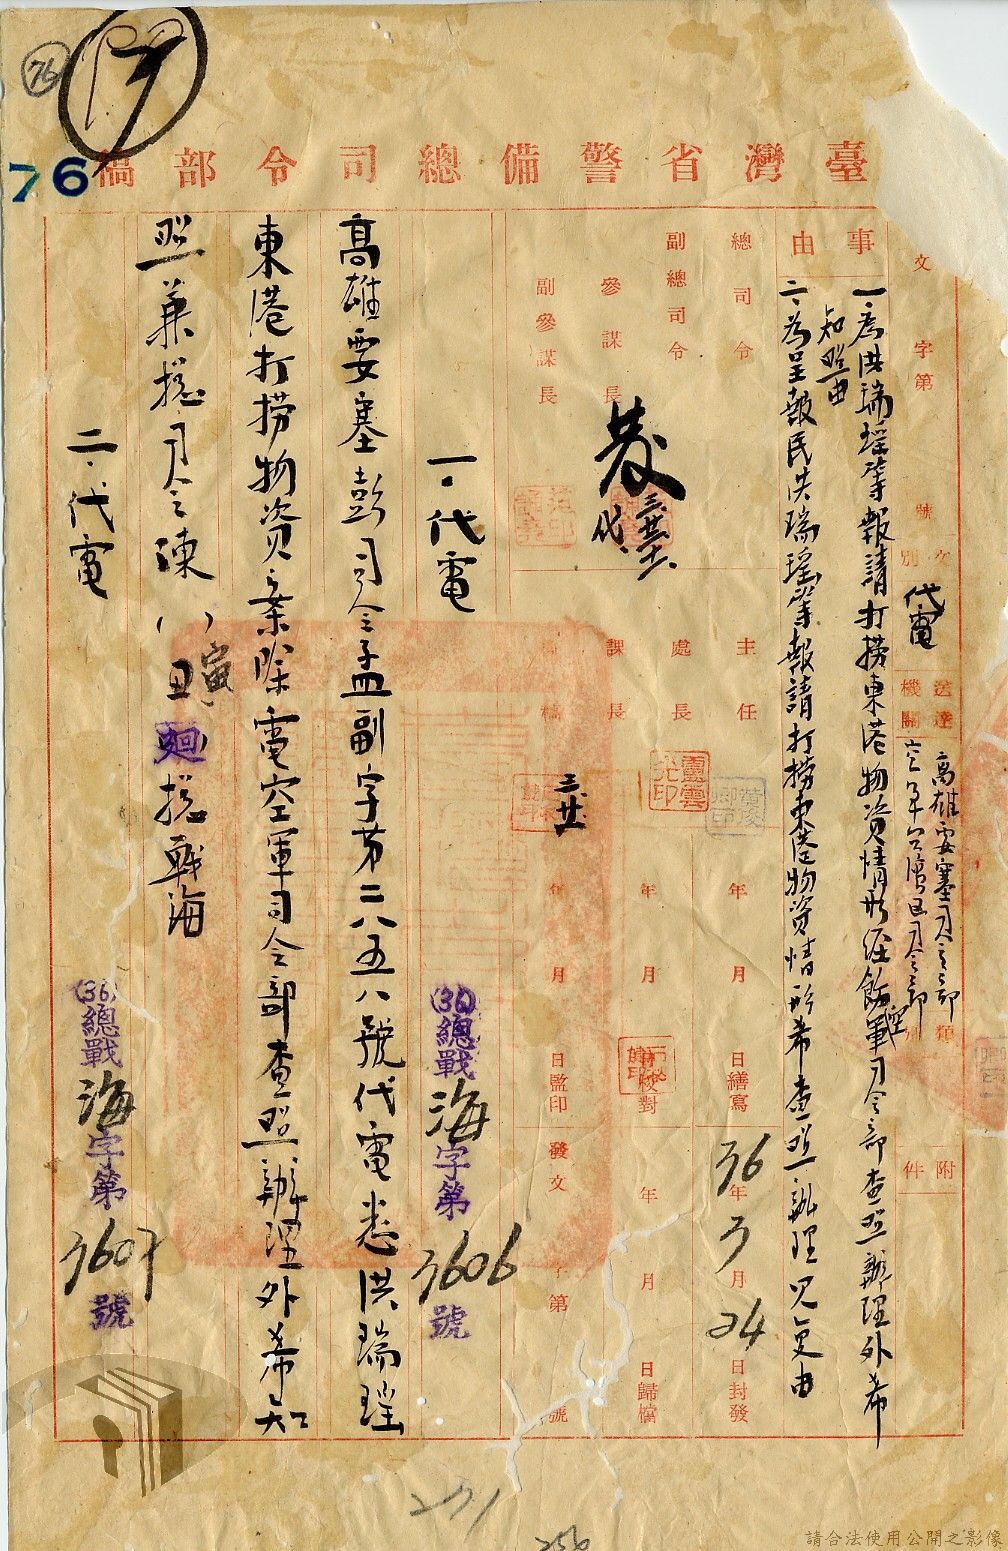 臺灣省警備總司令部稿
76
76
文 字第 號
文別 代電
送達機關 高雄要塞司令部
空軍台灣區司令部
類別
附件
事由
一、為洪瑞瑤等報請打撈東港物資情形經飭空軍司令部查照辦理外希
知照由
二、為呈報民洪瑞瑤等報請打撈東港物資情形希查照辦理見復由
總司令
副總司令
參謀長
副參謀長
發
代
主任
處長
課長
年 月 日繕寫
年 月 日校對
年 月 日監印
36年3月24日封發
年 月 日歸檔
發文 字第 號
一、代電
(36)總戰海字第3606號
高雄要塞彭司令孟副字第二八五八號代電悉洪瑞瑤
東港打撈物資案除電空軍司令部查照辦理外希知
照兼總司令陳( )寅 總戰海
二、代電
(36)總戰海字第3607號
271
256
請合法使用公開之影像